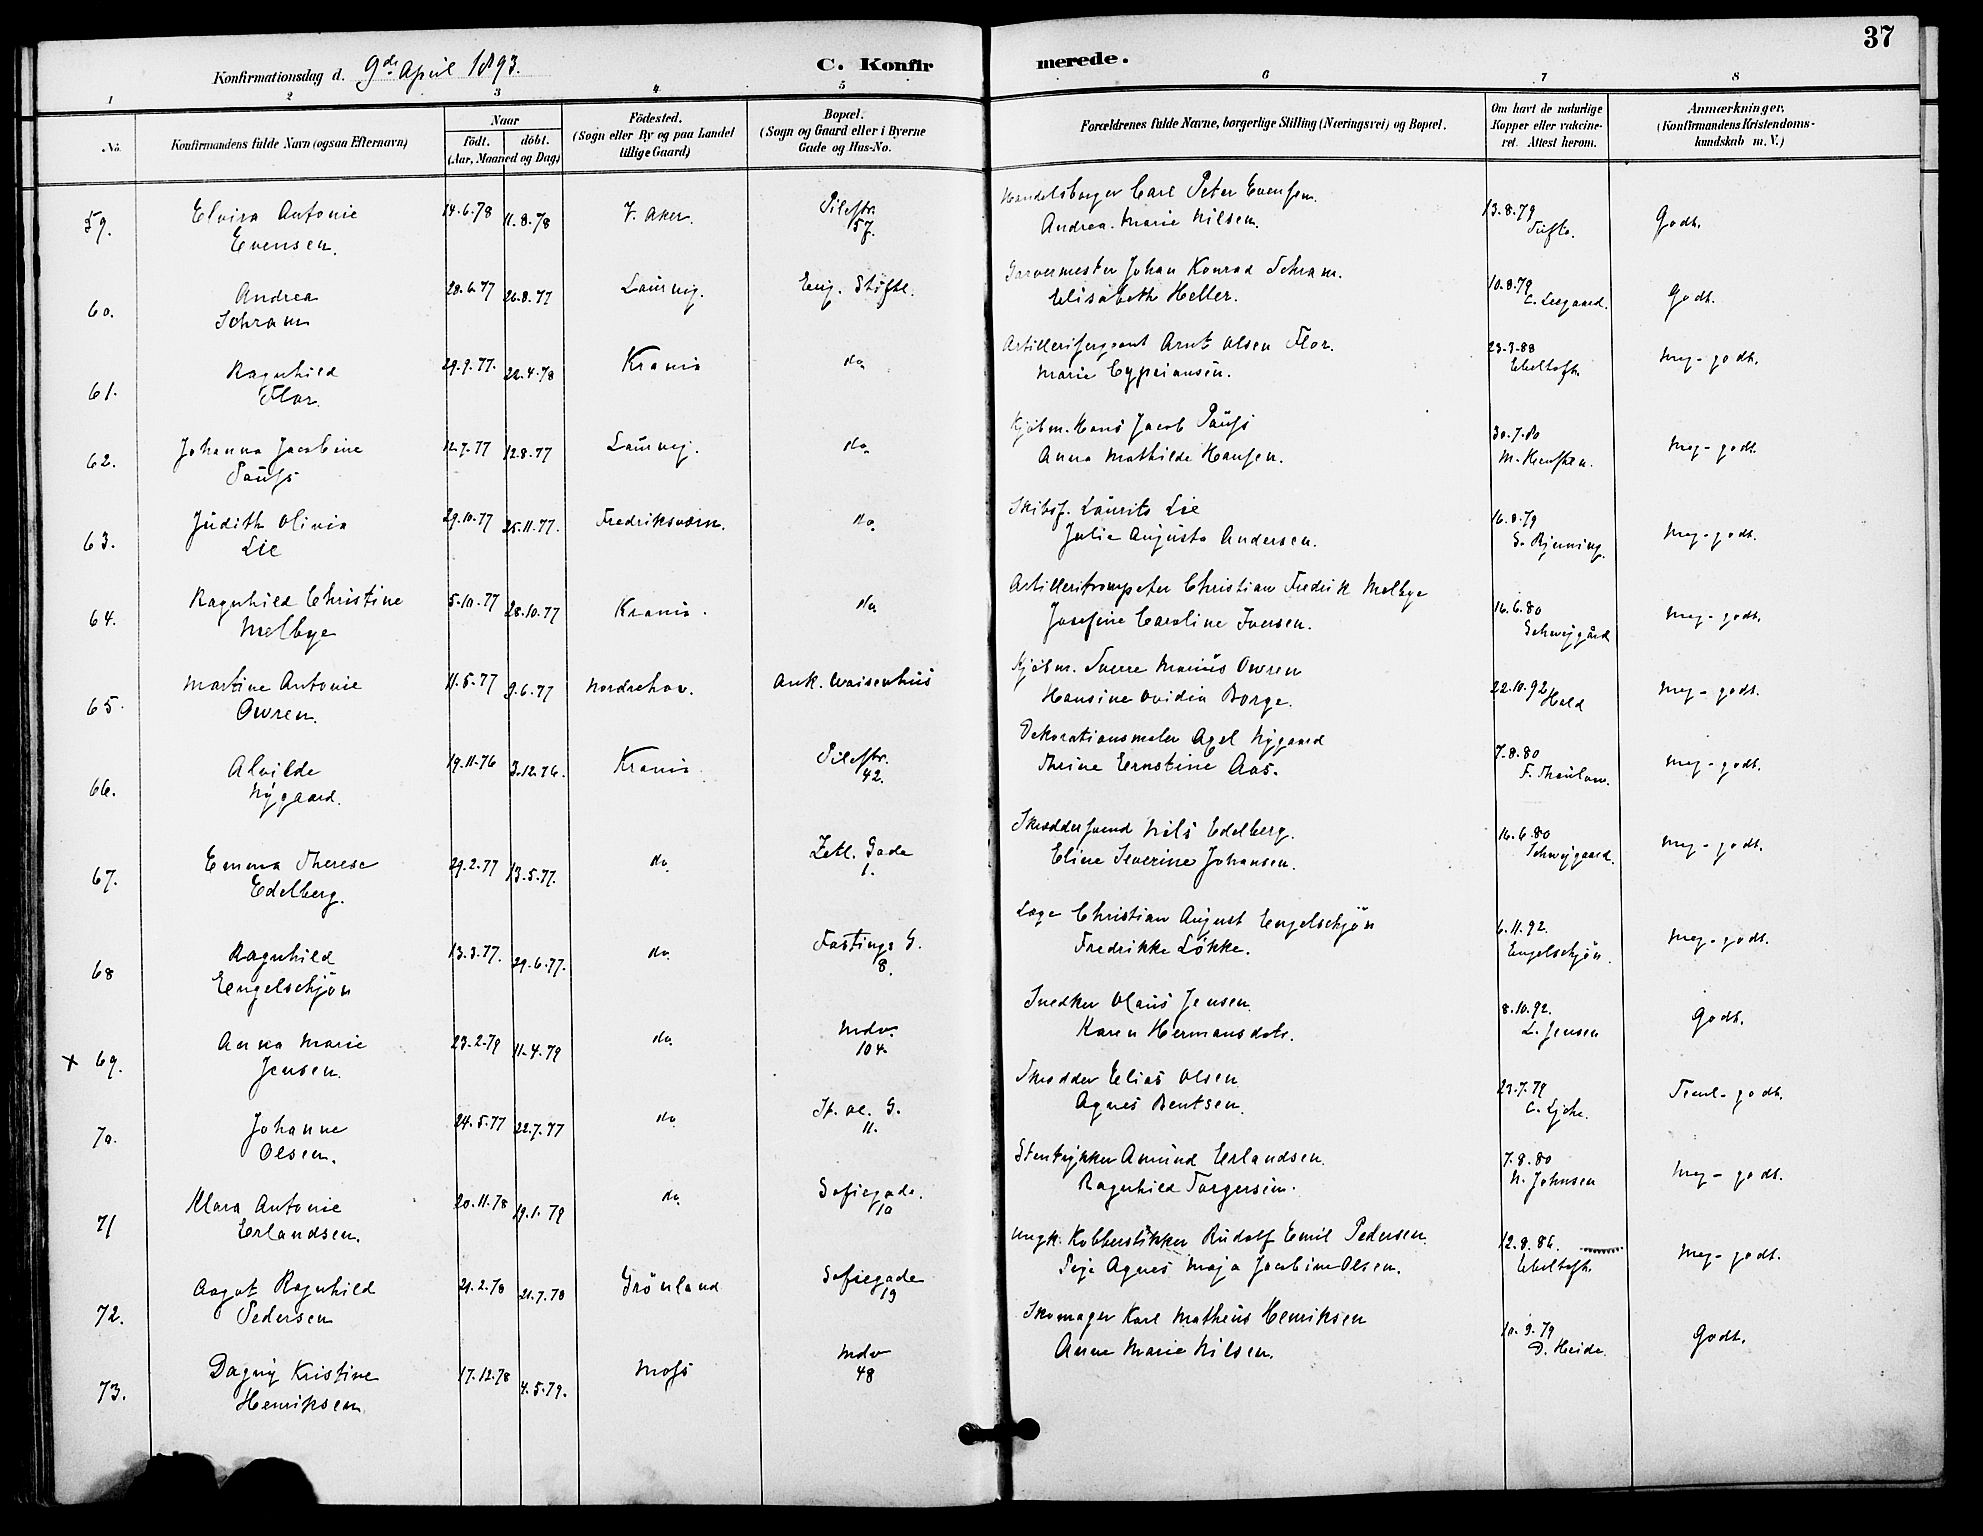 37
Konfirmationsdag d. 9de April 1893.
C. Konfirmerede.
1 2 3 4 5 6 7 8
No. Konfirmandens fulde Navn (ogsaa Efternavn)
Naar født. døbt. (Aar, Maaned og Dag)
Fødested. (Sogn eller By og paa Landet tillige Gaard)
Bopæl. (Sogn og Gaard eller i Byerne Gade og Hus-No.
Forældrenes fulde Navne, borgerlige Stilling (Næringsvei) og Bopæl.
Om havt de naturlige Kopper eller vakcineret. Attest herom.
Anmærkninger. (Konfirmandens Kristendomskundskab m. V.)
59. Elvira Antonie Evensen. 14.6.78 11.8.78 V. Aker. Pilestr. 57. Handelsborger Carl Peter Evensen. Andrea Marie Nilsen. 13.8.79 Godt.
60. Andrea Schram 28.6.77 26.8.77 Laurvig. Eug. Stiftl. Garvermester Johan Konrad Schram. Elisabeth Heller. 10.8.79 C. Leegaard. Godt.
61. Ragnhild Flor. 29.9.77. 22.4.78 Krania do. Artillerisergeant Arnt Olsen Flor. Marie Cyprianson. 23.3.88 Ebeltoft. Meg- godt.
62. Johanna Jacobine Paufs 12.7.77 12.8.77 Laurvig. do. Kjøbm. Hans Jacob Paufs Anna Mathilde Hansen. 30.7.80 Meg- godt.
63. Judith Olivia Lie 29.10.77 25.11.77. Fredriksværn. do. Skibsf. Laurits Lie Julie Augusta Andersen. 16.8.79 Meg- godt.
64. Ragnhild Christine Melbye 5.10.77 28.10.77 Krania. do. Artilleritrompeter Christian Fredrik Melbye Josefine Caroline Iversen. 16.6.80 Schweygård Meg- godt.
65. Martine Antonie Owren. 11.5.77 9.6.77 Norderhov. Ank. Waisenhus Kjøbm. Sverre Marius Owren Hansine Ovidia Borge. 22.10.92 Hald Meg- godt.
66. Alvilde Nygaard. 19.11.76 3.12.76. Krania Pilestr. 42. Dekorationsmaler Axel Nygaard Thrine Ernstine Aas. 7.8.80 F. Thaulow. Meg- godt.
67. Emma Therese Edelberg. 29.2.77 13.5.77. do. Zetl. Gade 1. Skræddersvend Nils Edelberg. Eline Severine Johansen. 16.6.80 Schweygaard. Meg- godt.
68 Ragnhild Engelschjøn 13.3.77. 29.6.77. do. Fastings G. 8. Læge Christian August Engelschjøn Fredrikke Løkke. 6.11.92. Engelschjøn. Meg- godt.
x 69. Anna Marie Jensen. 23.2.79 11.4.79 do. Mdv. 104. Snedker Olaus Jensen. Karen Hermansdatr. 8.10.92. L. Jensen Godt.
70. Johanne Olsen. 24.5.77 22.7.77 do. St. Ol. G. 11. Skrædder Elias Olsen. Agnes Bentsen. 23.7.79 Teml- godt.
71 Klara Antonie Erlandsen. 20.11.78 19.1.79 do. Sofiegade. 10 Stentrykker Amund Erlandsen. Ragnhild Torgersen. 7.8.80 N. Johnsen Meg- godt.
72. Aagot Ragnhild Pedersen 21.2.78 21.7.78 Grönland Sofiegade 19 Ungk. Kobberstikker Rudolf Emil Pedersen. Pige Agnes Maja Jacobine Olsen. 12.8.86. Ebeltoft. Meg- godt.
73. Dagny Kristine Henriksen 17.12.78 4.5.79. Mofs Mdv 48 Skomager Karl Matheus Henriksen Anne Marie Nilsen. 10.9.79 Heide. Godt.